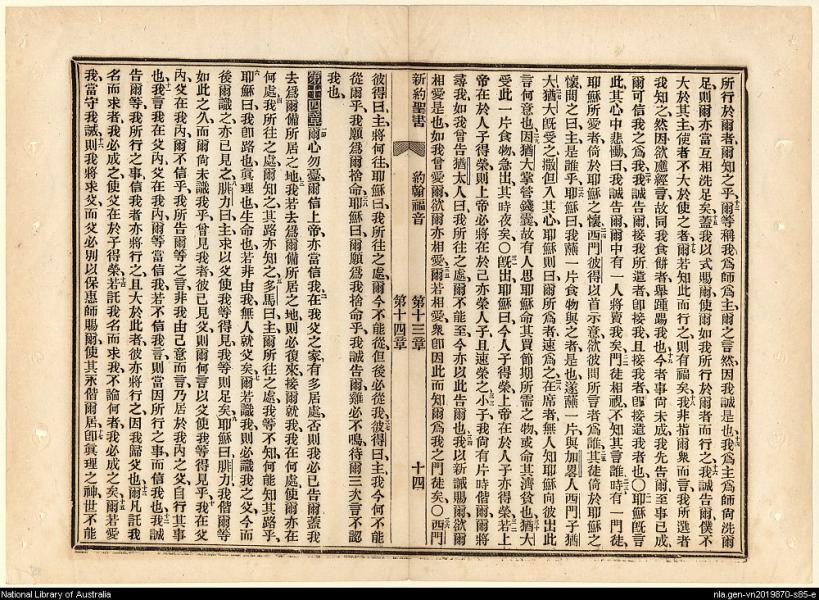 所行於爾者爾知之乎爾等稱我爲師爲主爾之言然因我誠是也我爲主爲師尚洗爾
足則爾亦當互相洗足矣蓋我以式賜爾使爾如我所行於爾者而行之我誠告爾僕不
大於其主使者不大於使之者爾若知此而行之則有福矣我非指爾衆而言我所選者
我知之然因欲應經言故同我食餅者舉踵踢我也今者事尚未成我先告爾至事已成
爾可信我之爲我我誠告爾接我所遣者卽接我且接我者卽接遣我者也〇耶穌旣言
此其心中悲慟曰我誠告爾爾中有一人將賣我矣門徒相視不知其言誰時有一門徒
耶穌所愛者倚於耶穌之懷西門彼得以首示意欲彼問所言者爲誰其徒倚於耶穌之
懷問之曰主是誰乎耶穌曰我蘸一片食物與之者是也遂蘸一片與加畧人西門子猶
大猶大旣受之撒但入其心耶穌則曰爾所爲者速爲之在席者無人知耶穌向彼出此
言何意也因猶大掌管錢囊故有人思耶穌命其買節期所需之物或命其濟貧也猶大
受此一片食物急出其時夜矣〇旣出耶穌曰今人子得榮上帝在於人子亦得榮若上
帝在於人子得榮則上帝必將在於己亦榮人子且速榮之小子我尚有片時偕爾爾將
尋我如我曾告猶太人曰我所往之處爾不能至今亦以此告爾也我以新誡賜爾欲爾
相愛是也如我曾愛爾欲爾亦相愛爾若相愛衆卽因此而知爾爲我之門徒矣〇西門
新約聖書 約翰福音 第十三章 第十四章 十四
彼得曰主將何往耶穌曰我所往之處爾今不能從但後必從我彼得曰主我今何不能
從爾乎我願爲爾捨命耶穌曰爾願爲我捨命乎我誠告爾雞必不鳴待爾三次言不認
我也
第十四章爾心勿憂爾信上帝亦當信我在我父之家有多居處否則我必已告爾蓋我
去爲爾備所居之地我若去爲爾備所居之地則必復來接爾就我我在何處使爾亦在
何處我所往之處爾知之其路亦知之多馬曰主爾所往之處我等不知何能知其路乎
耶穌曰我卽路也眞理也生命也若非由我無人就父矣爾若識我則必識我之父今而
後爾識之亦已見之腓力曰主求以父使我等得見我等則足矣耶穌曰腓力我偕爾等
如此之久而爾尚未識我乎曾見我者彼已見父則爾何言以父使我等得見乎我在父
內父在我內爾不信乎我所告爾等之言非我由己意而言乃居於我內之父自行其事
也我言我在父內父在我內爾等當信我若不信我言則當因所行之事而信我也我誠
告爾等我所行之事信我者亦將行之且大於此者彼亦將行之因我歸父也爾凡託我
名而求者我必成之使父在於子得榮若託我名而求我不論何者我必成之矣爾若愛
我當守我誡則我將求父而父必別以保惠師賜爾使其永偕爾居卽眞理之神世不能
National Library of Australia
nla.gen-vn2019870-s85-e